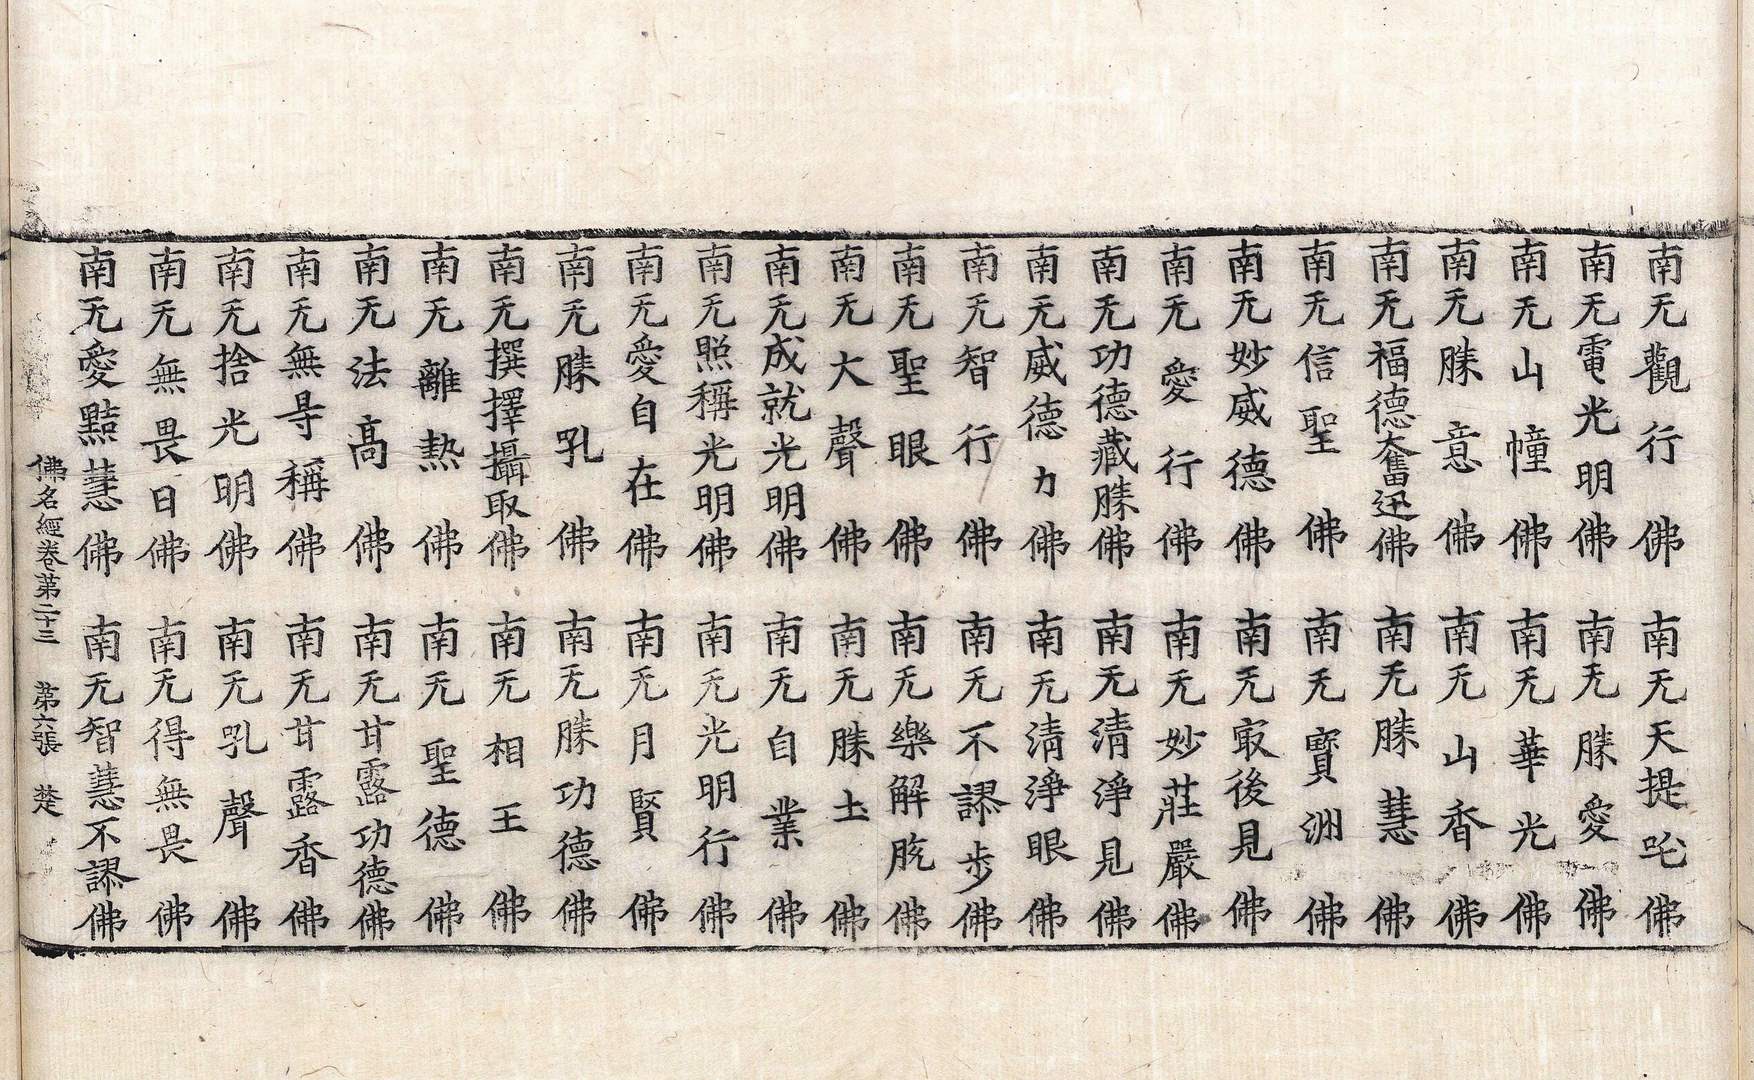 南无觀行佛 南无天提吒佛
南无電光明佛 南无勝愛佛
南无山幢佛 南无華光佛
南无勝意佛 南无山香佛
南无福德奮迅佛 南无勝慧佛
南无信聖佛 南无寶洲佛
南无妙威德佛 南无㝡後見佛
南无愛行佛 南无妙莊嚴佛
南无功德藏勝佛 南无清淨見佛
南无威德力佛 南无清淨眼佛
南无智行佛 南无不謬步佛
南无聖眼佛 南无樂解脫佛
南无大聲佛 南无勝土佛
南无成就光明佛 南无自業佛
南无照稱光明佛 南无光明行佛
南无愛自在佛 南无月賢佛
南无勝吼佛 南无勝功德佛
南无撰擇攝取佛 南无相王佛
南无離熱佛 南无聖德佛
南无法高佛 南无甘露功德佛
南无無㝵稱佛 南无甘露香佛
南无捨光明佛 南无吼聲佛
南无無畏日佛 南无得無畏佛
南无愛黠慧佛 南无智慧不謬佛
佛名經卷第二十三 第六張 楚